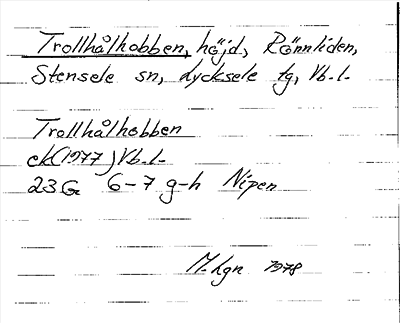 Trollhålhobben, höjd, Rönnliden,
Stensele sn, Lycksele tg, Vb.l.
Trollhålhobben
ek(1977)Vb.l.
23G 6-7 g-h Nipen
M.hgn 1978